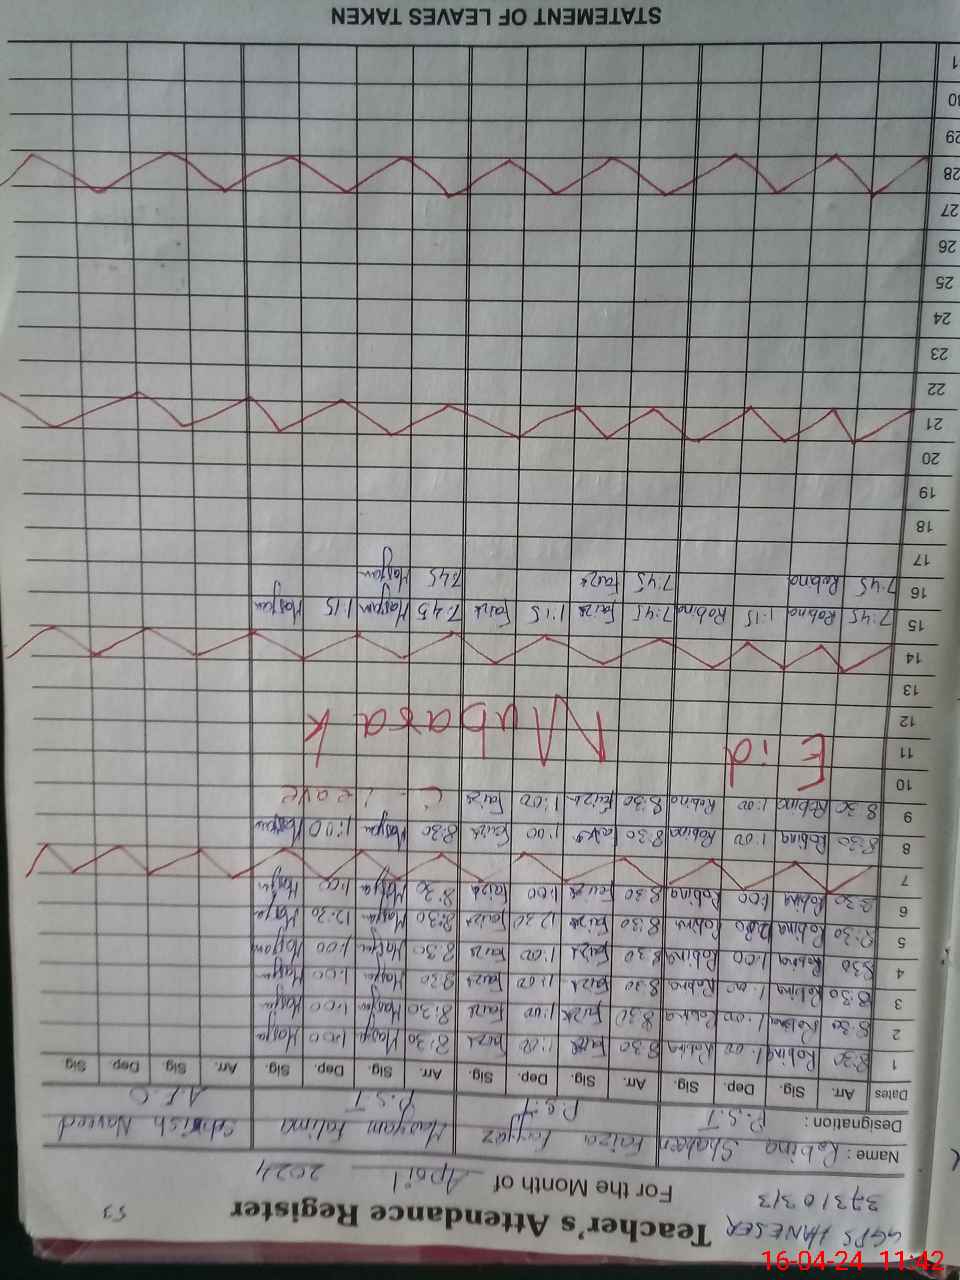 GGPS HANESER Teacher's Attendance Register 53
37310313 For the Month of April 2024
Name: Robina Shaheen Faiza Fayyaz Maryam Fatima Sehrish Naveed
Designation: P.S.T P.S.T P.S.T
Dates Arr. Sig. Dep. Sig. Arr. Sig. Dep. Sig. Arr. Sig. Dep. Sig. Arr. Sig. Dep. Sig.
1 8:30 Robina 1:00 Robina 8:30 Faiza 1:00 Faiza 8:30 Maryam 1:00 Maryam
2 8:30 Robina 1:00 Robina 8:30 Faiza 1:00 Faiza 8:30 Maryam 1:00 Maryam
3 8:30 Robina 1:00 Robina 8:30 Faiza 1:00 Faiza 8:30 Maryam 1:00 Maryam
4 8:30 Robina 1:00 Robina 8:30 Faiza 1:00 Faiza 8:30 Maryam 1:00 Maryam
5 8:30 Robina Robina 8:30 Faiza 12:30 Faiza 8:30 Maryam 12:30 Maryam
6 8:30 Robina 1:00 Robina 8:30 Faiza 1:00 Faiza 8:30 Maryam 1:00 Maryam
7
8 8:30 Robina 1:00 Robina 8:30 Faiza 1:00 Faiza 8:30 Maryam 1:00 Maryam
9 8:30 Robina 1:00 Robina 8:30 Faiza 1:00 Faiza C - Leave
10
11 Eid Mubarak
12
13
14
15 7:45 Robina 1:15 Robina 7:45 Faiza 1:15 Faiza 7:45 Maryam 1:15 Maryam
16 7:45 Robina 7:45 Faiza 7:45 Maryam
17
18
19
20
21
22
23
24
25
26
27
28
29
30
31
STATEMENT OF LEAVES TAKEN
16-04-24 11:42